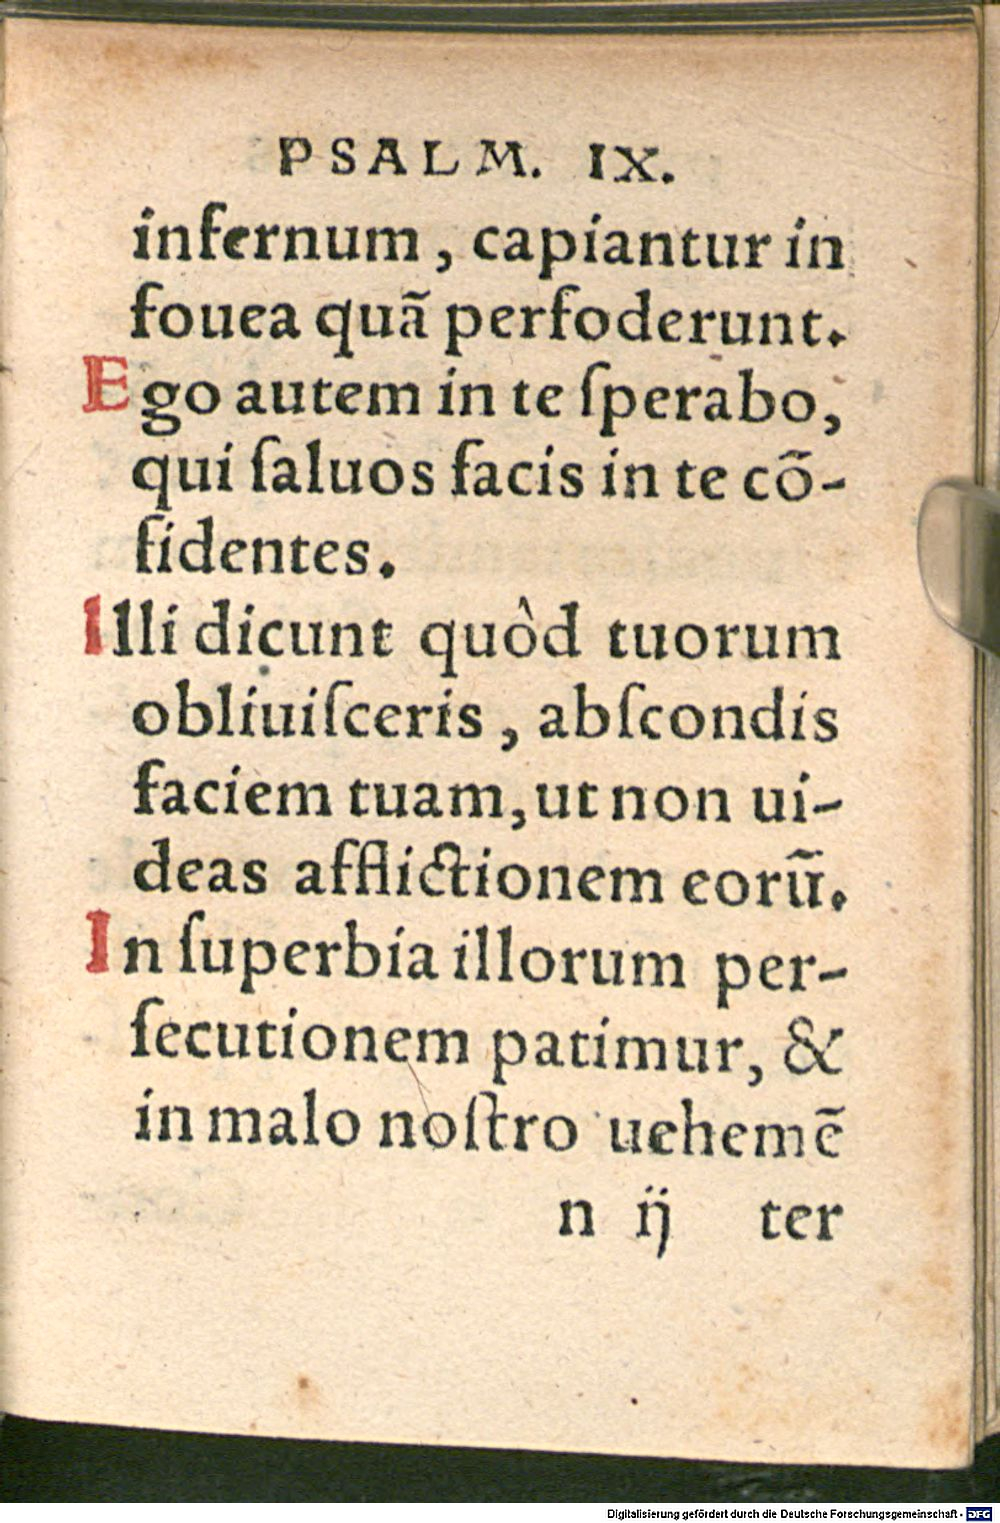 PSALM. IX.
infernum, capiantur in
fouea quã perfoderunt.
Ego autem in te ſperabo,
qui ſaluos facis in te cõ-
fidentes.
Illi dicunt quòd tuorum
obliuiſceris, abſcondis
faciem tuam, ut non ui-
deas afflictionem eorũ.
In ſuperbia illorum per-
ſecutionem patimur, &
in malo noſtro uehemẽ
n ij ter
Digitalisierung gefördert durch die Deutsche Forschungsgemeinschaft - DFG